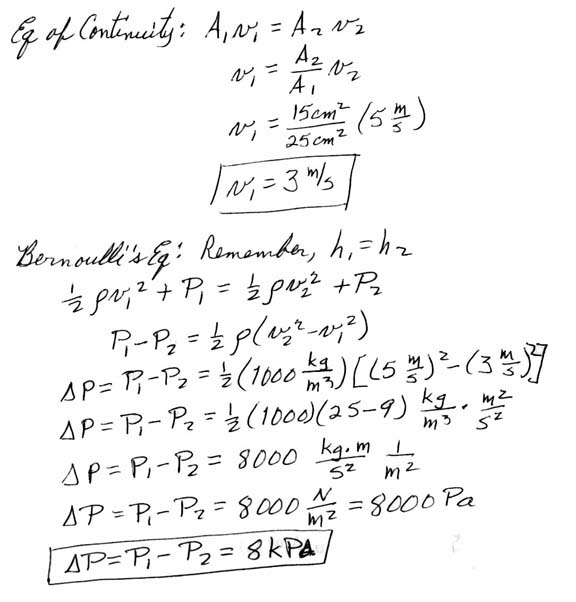 Eq of Continuity: A₁v₁ = A₂v₂
v₁ = A₂/A₁ v₂
v₁ = 15cm²/25cm² (5 m/s)
v₁ = 3 m/s
Bernoulli's Eq: Remember, h₁ = h₂
½ρv₁² + P₁ = ½ρv₂² + P₂
P₁-P₂ = ½ρ(v₂²-v₁²)
ΔP = P₁-P₂ = ½(1000 kg/m³)[(5 m/s)²-(3 m/s)²]
ΔP = P₁-P₂ = ½(1000)(25-9) kg/m³ · m²/s²
ΔP = P₁-P₂ = 8000 kg·m/s² 1/m²
ΔP = P₁-P₂ = 8000 N/m² = 8000 Pa
ΔP = P₁-P₂ = 8kPa